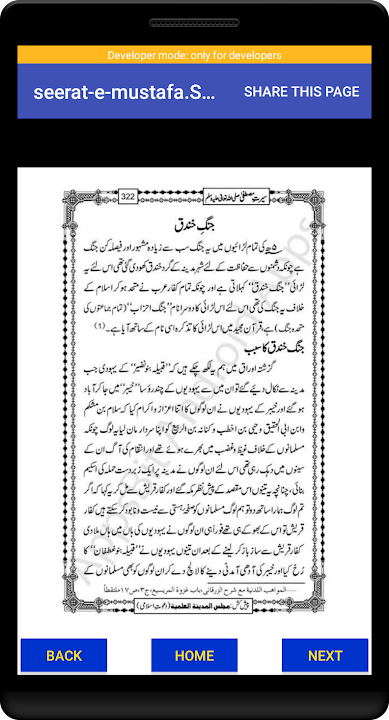 Developer mode: only for developers
seerat-e-mustafa.S...
SHARE THIS PAGE
سیرتِ مصطفیٰ صلی اللہ تعالیٰ علیہ وسلم
322
جنگِ خندق
۵ھ کی تمام لڑائیوں میں یہ جنگ سب سے زیادہ مشہور اور فیصلہ کن جنگ
ہے چونکہ دشمنوں سے حفاظت کے لئے شہر مدینہ کے گرد خندق کھودی گئی تھی اس لئے یہ
لڑائی "جنگ خندق" کہلاتی ہے اور چونکہ تمام کفار عرب نے متحد ہو کر اسلام کے
خلاف یہ جنگ کی تھی اس لئے اس لڑائی کا دوسرا نام "جنگ احزاب" (تمام جماعتوں کی
متحدہ جنگ) ہے، قرآن مجید میں اس لڑائی کا تذکرہ اسی نام کے ساتھ آیا ہے۔ (۱)
جنگ خندق کا سبب
گزشتہ اوراق میں ہم یہ لکھ چکے ہیں کہ "قبیلہ بنو نضیر" کے یہودی جب
مدینہ سے نکال دیئے گئے تو ان میں سے یہودیوں کے چند رؤسا "خیبر" میں جا کر آباد
ہو گئے اور خیبر کے یہودیوں نے ان لوگوں کا اتنا اعزاز و اکرام کیا کہ سلام بن مشکم
و ابن ابی الحقیق و حیی بن اخطب و کنانہ بن الربیع کو اپنا سردار مان لیا یہ لوگ چونکہ
مسلمانوں کے خلاف غیظ و غضب میں بھرے ہوئے تھے اور انتقام کی آگ ان کے
سینوں میں دہک رہی تھی اس لئے ان لوگوں نے مدینہ پر ایک زبردست حملہ کی اسکیم
بنائی، چنانچہ یہ تینوں اس مقصد کے پیش نظر مکہ گئے اور کفار قریش سے مل کر یہ کہا کہ اگر
تم لوگ ہمارا ساتھ دو تو ہم لوگ مسلمانوں کو صفحہ ہستی سے نیست و نابود کر سکتے ہیں کفار
قریش تو اس کے بھوکے ہی تھے فوراً ہی ان لوگوں نے یہودیوں کی ہاں میں ہاں ملا دی
کفار قریش سے ساز باز کر لینے کے بعد ان تینوں یہودیوں نے "قبیلہ بنو غطفان" کا
رُخ کیا اور خیبر کی آدھی آمدنی دینے کا لالچ دے کر ان لوگوں کو بھی مسلمانوں کے
المواهب اللدنية مع شرح الزرقانی، باب غزوة المريسيع، ج۳، ص۱۷ ملتقطاً
پیش کش: مجلس المدینة العلمیة (دعوتِ اسلامی)
BACK
HOME
NEXT